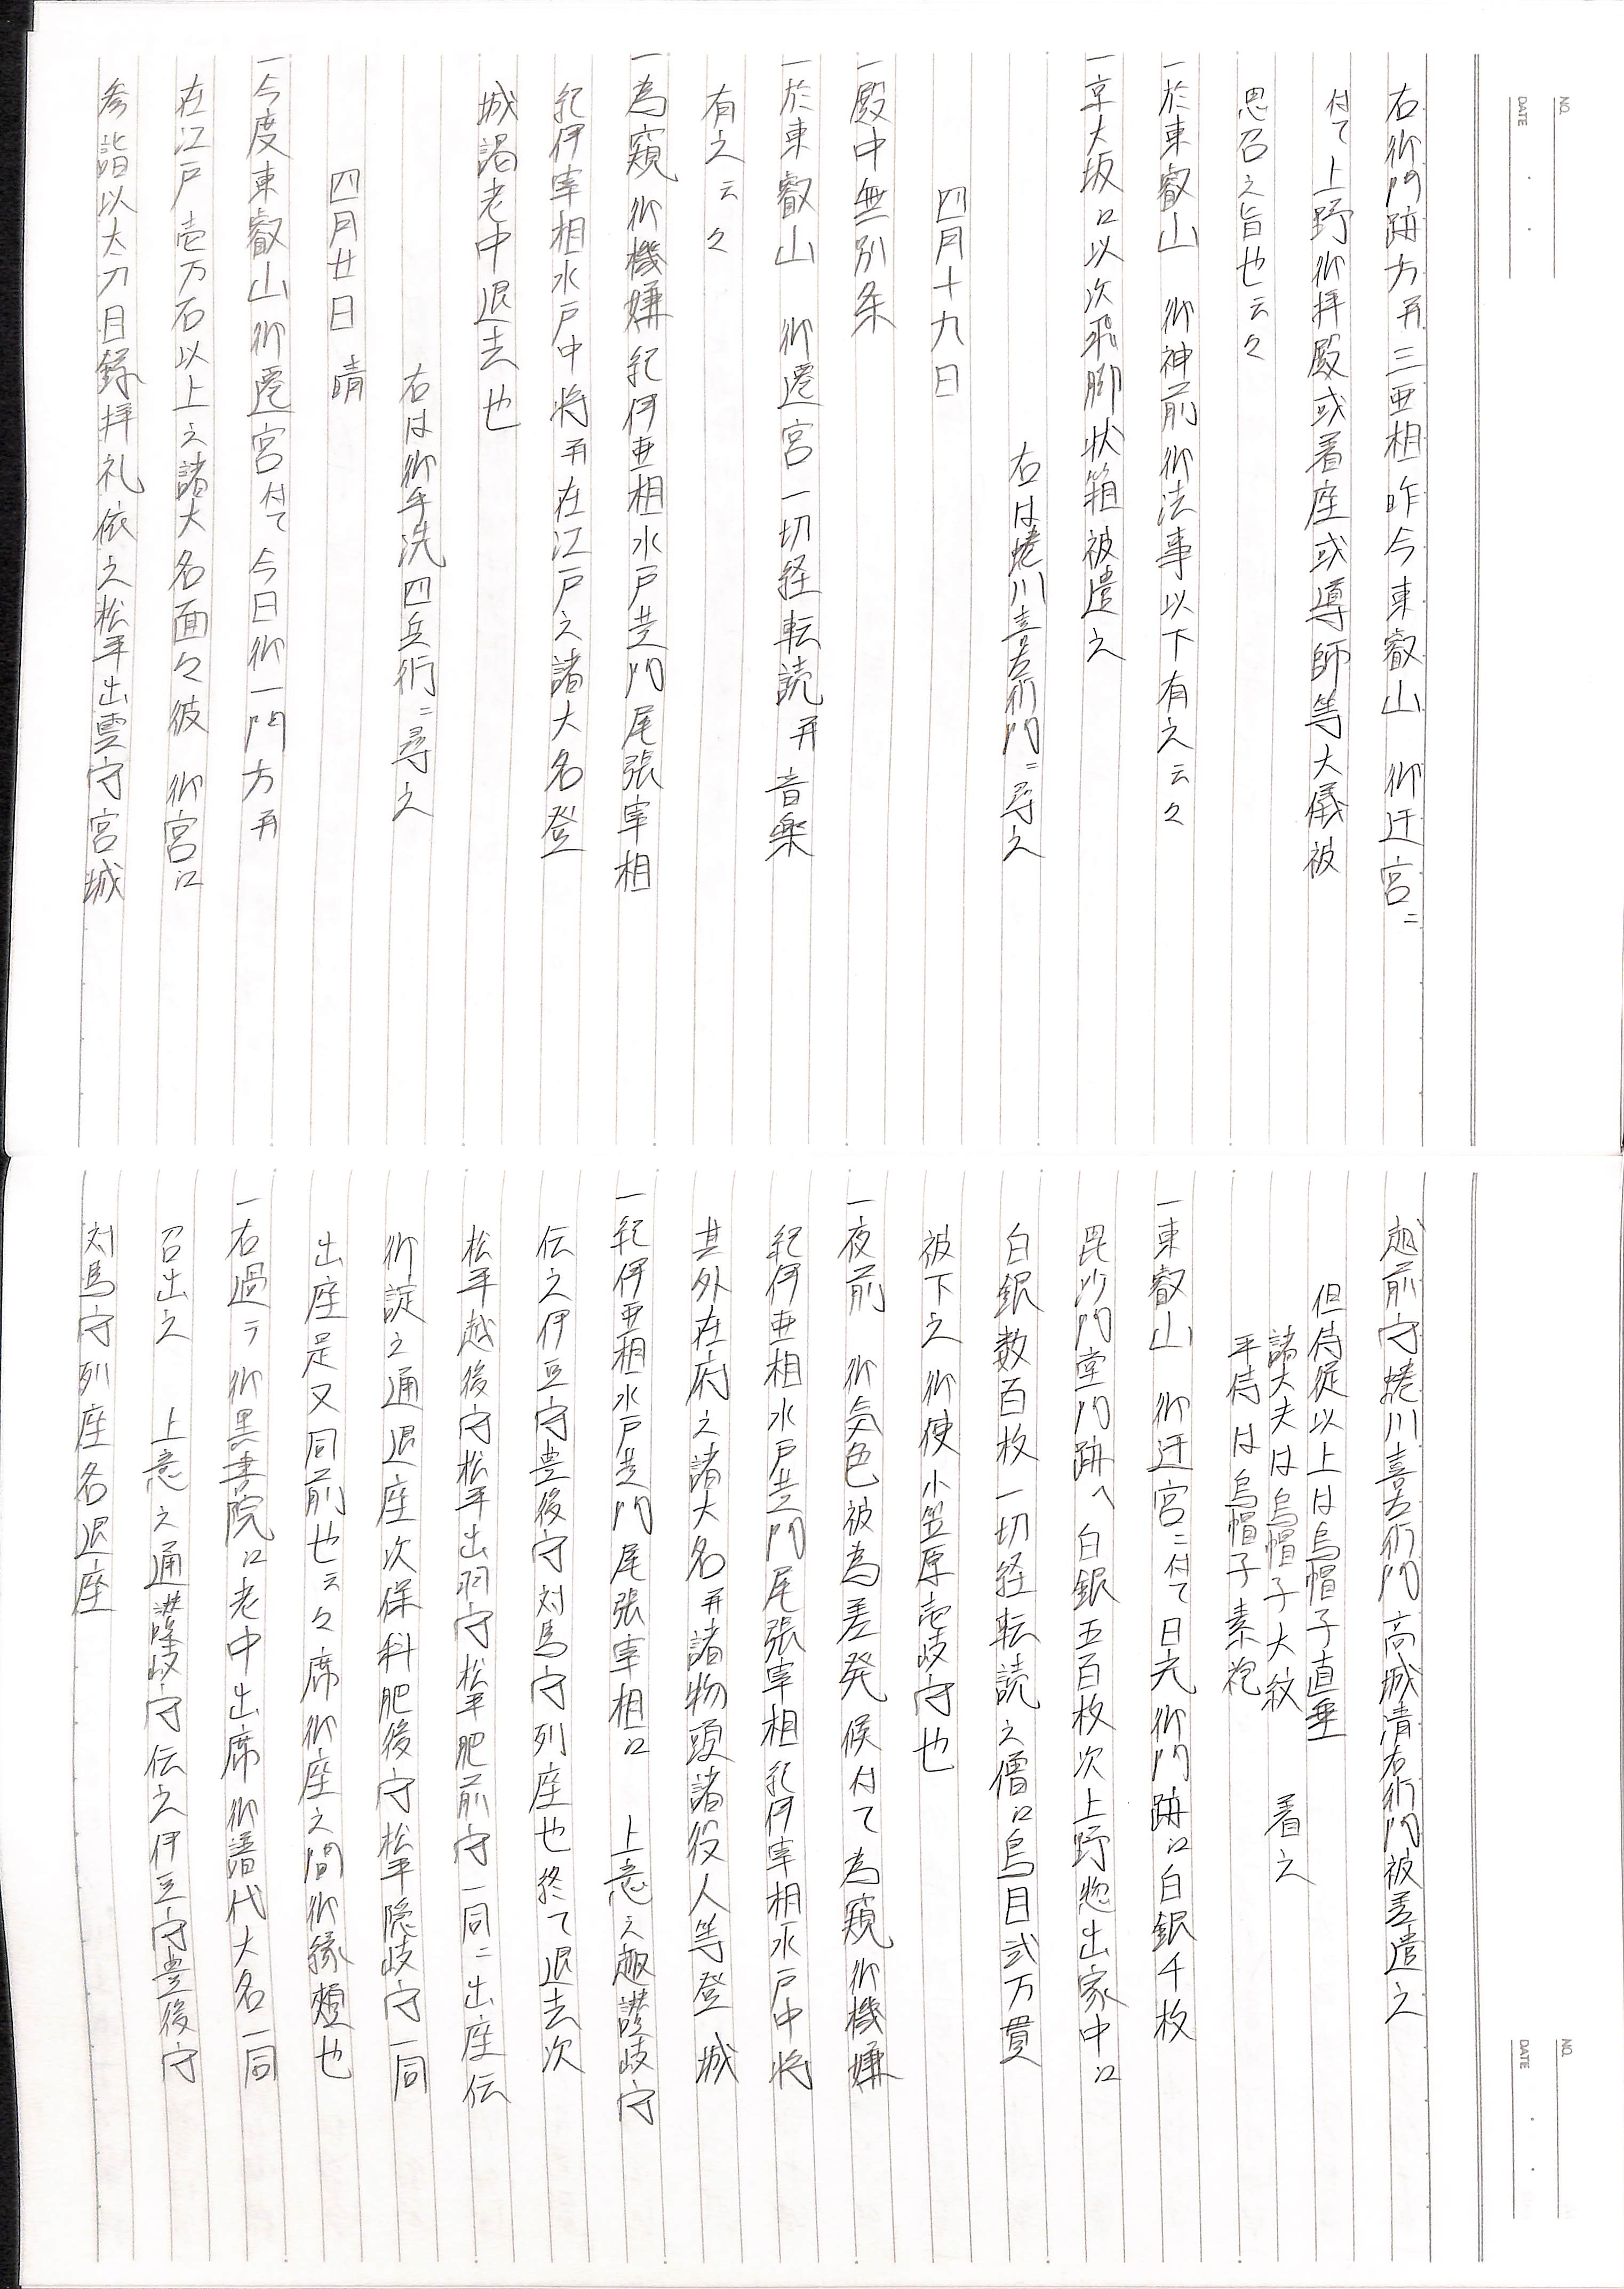 NO.
DATE
右御門跡方并三亜相昨今東叡山　御迁宮ニ
付て上野御拝殿或着座或導師等大儀被
思召之旨也云々
一於東叡山　御神前御法事以下有之云々
一京大坂江以次飛脚状箱被遣之
右は蜷川喜左衛門ニ尋之
四月十九日
一殿中無別条
一於東叡山　御遷宮一切経転読并音楽
有之云々
一為窺御機嫌紀伊亜相水戸黄門尾張宰相
紀伊宰相水戸中将并在江戸之諸大名登
城謁老中退去也
右は御手洗四兵衛ニ尋之
四月廿日　晴
一今度東叡山御遷宮付て今日御一門方并
在江戸壱万石以上之諸大名面々彼　御宮江
参詣以太刀目録拝礼依之松平出雲守宮城
NO.
DATE
越前守蜷川喜左衛門高城清右衛門被差遣之
但侍従以上は烏帽子直垂
諸大夫は烏帽子大紋　着之
平侍は烏帽子素袍
一東叡山　御迁宮ニ付て日光御門跡江白銀千枚
毘沙門堂門跡へ白銀五百枚次上野惣出家中江
白銀数百枚一切経転読之僧江鳥目弐万貫
被下之御使小笠原壱岐守也
一夜前　御気色被為差発候付て為窺御機嫌
紀伊亜相水戸黄門尾張宰相紀伊宰相水戸中将
其外在府之諸大名并諸物頭諸役人等登城
一紀伊亜相水戸黄門尾張宰相江　上意之趣讃岐守
伝之伊豆守豊後守対馬守列座也終て退去次
松平越後守松平出羽守松平肥前守一同ニ出座伝
御諚之通退座次保科肥後守松平隠岐守一同
出座是又同前也云々席御座之間御縁頬也
一右過テ御黒書院江老中出席御譜代大名一同
召出之　上意之通讃岐守伝之伊豆守豊後守
対馬守列座各退座